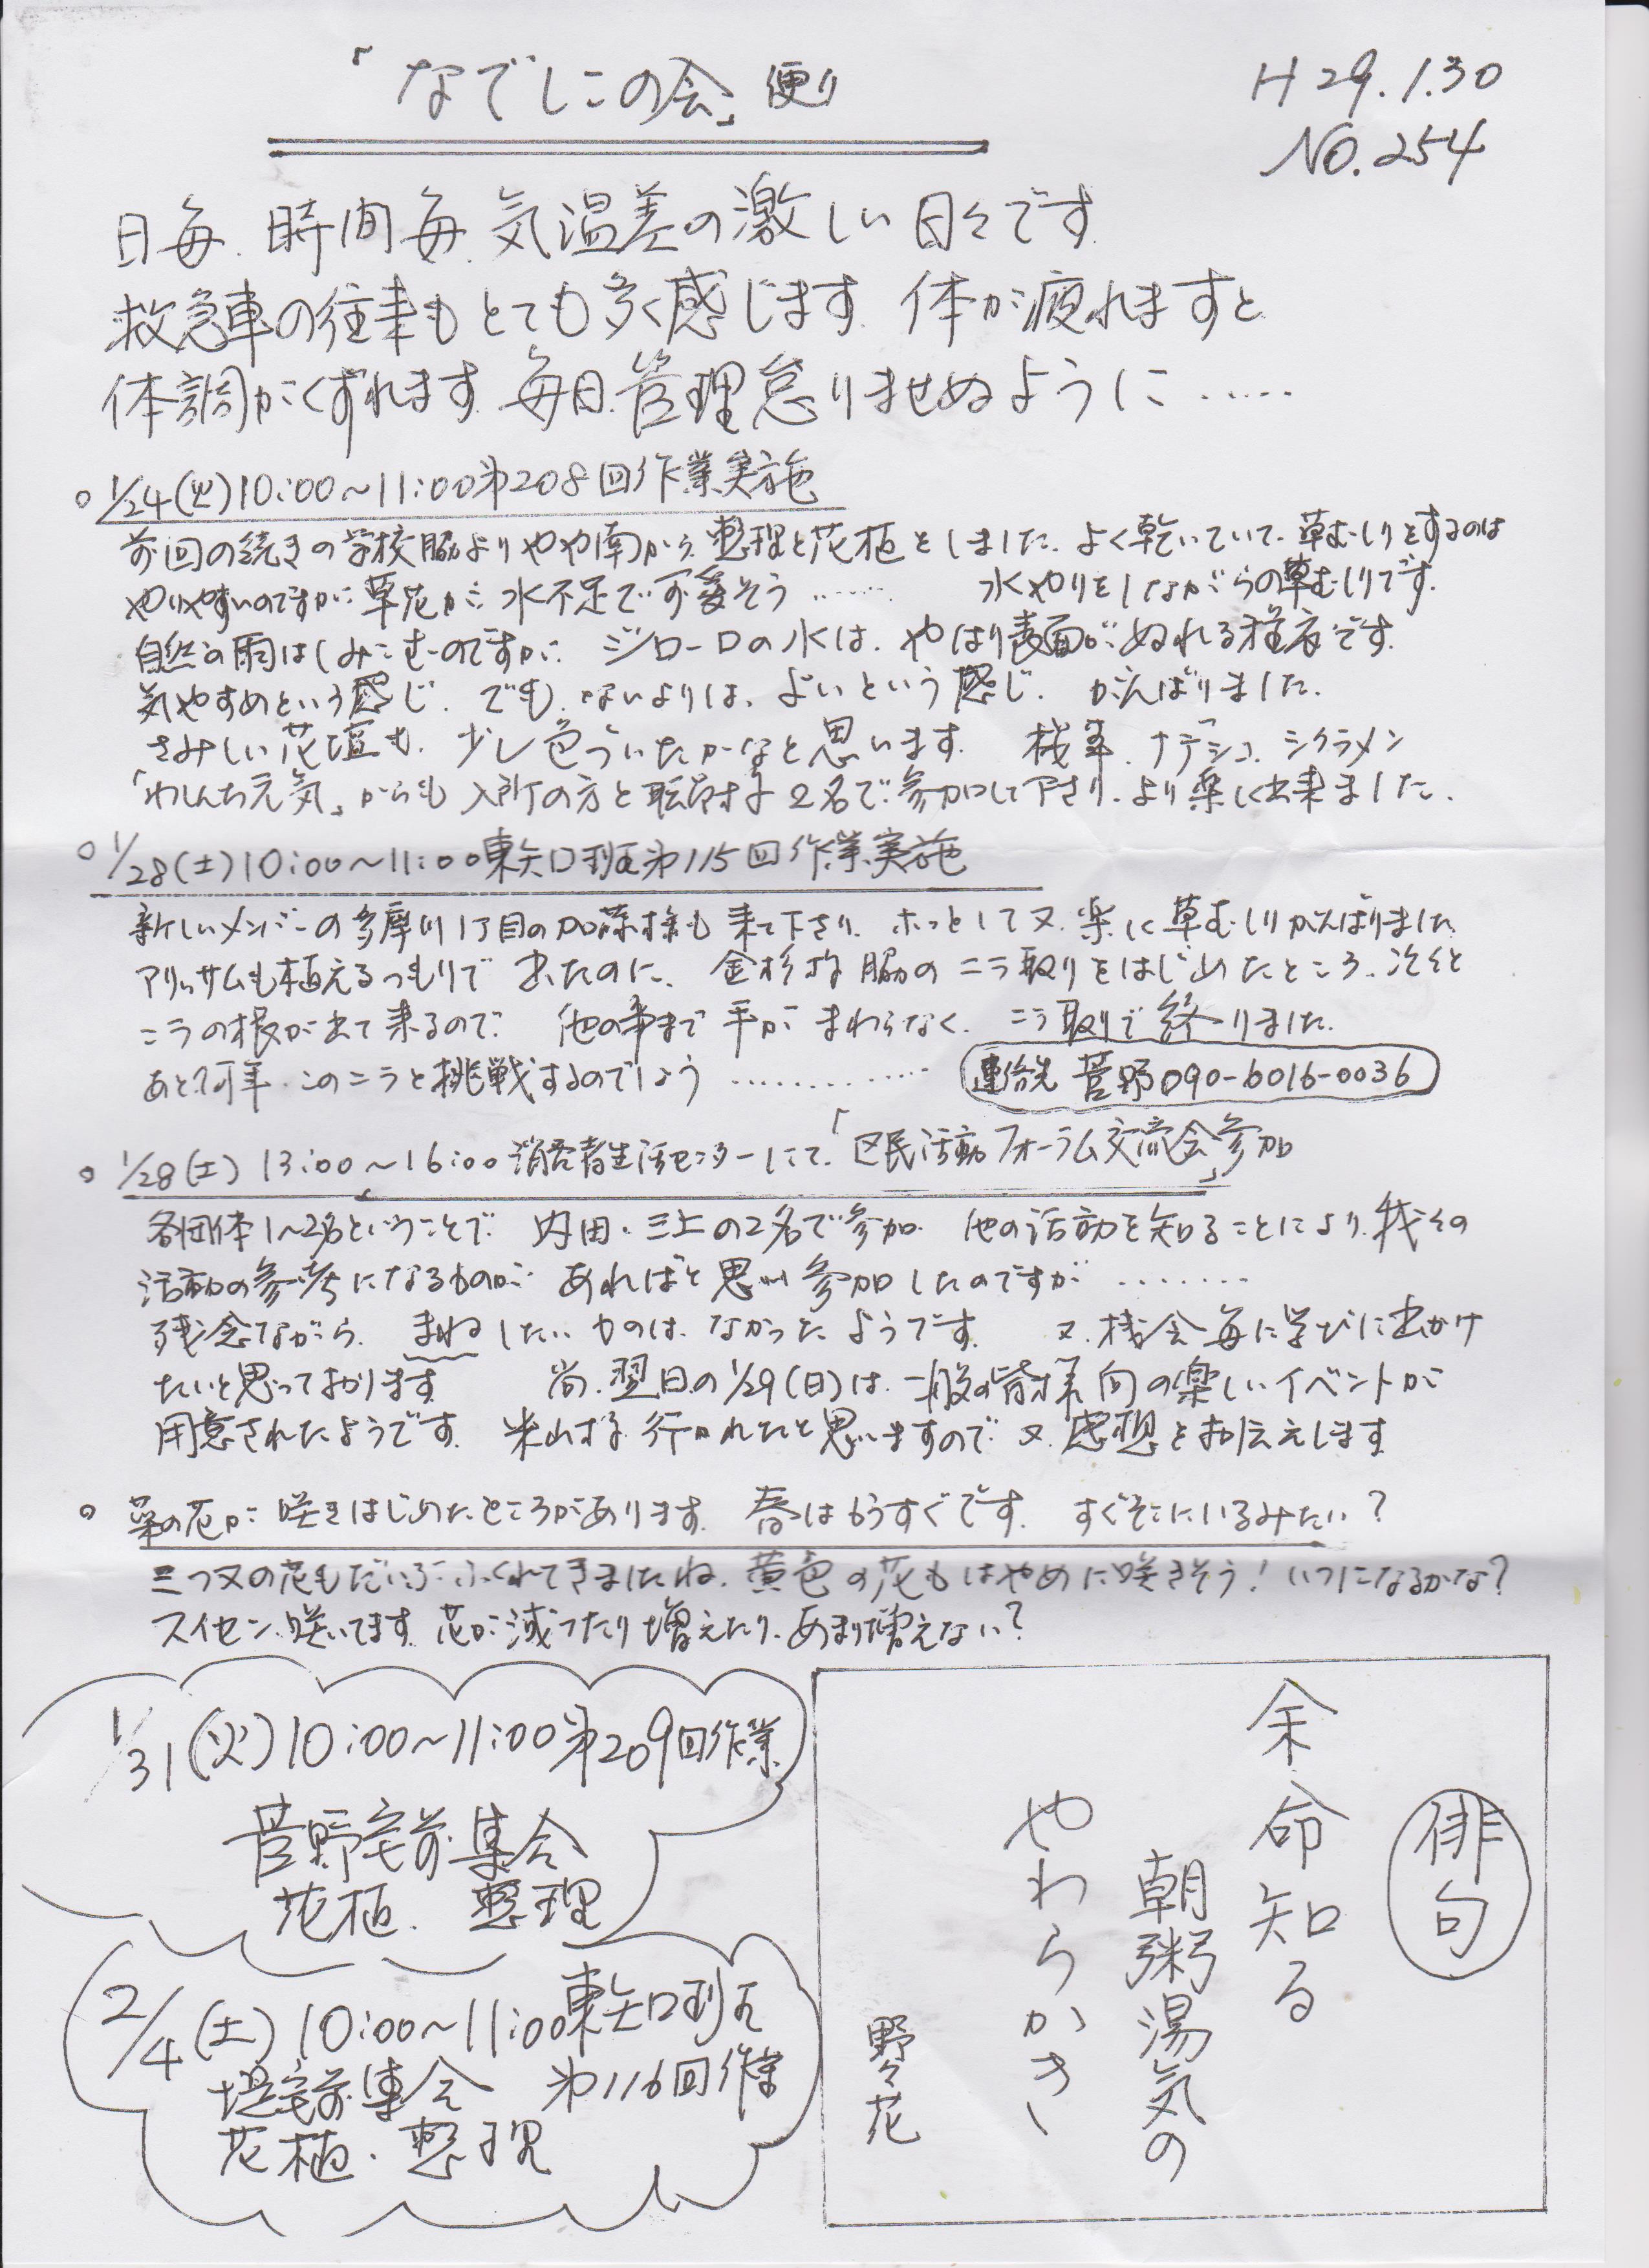 「なでしこの会」便り
H29.1.30
NO.254
日毎、時間毎、気温差の激しい日々です。
救急車の往来もとても多く感じます。体が疲れますと
体調がくずれます。毎日、管理怠りませぬように……
○ 1/24(火)10:00～11:00第208回作業実施
前回の続きの学校脇よりやや南から、整理と花植をしました。よく乾いていて、草むしりをするのは
やりやすいのですが、草花が水不足で可愛そう…… 水やりをしながらの草むしりです。
自然の雨はしみこむのですが、ジョーロの水は、やはり表面がぬれる程度です。
気やすめという感じ、でも、ないよりは、よいという感じ、がんばりました。
さみしい花壇も、少し色づいたかなと思います。 ナデシコ、シクラメン
「わしんち元気」からも入所の方と職員様2名で参加して下さり、より楽しく出来ました。
○ 1/28(土)10:00～11:00東矢口班第115回作業実施
新しいメンバーの多摩川1丁目の加藤様も来て下さり、ホっとして又、楽しく草むしりがんばりました
アリッサムも植えるつもりで出たのに、金杉様脇のニラ取りをはじめたところ、次々と
ニラの根が出て来るので、他の事まで手がまわらなく、ニラ取りで終りました。
あと何年、このニラと挑戦するのでしょう…………
連絡先 菅野090-6016-0036
○ 1/28(土) 13:00～16:00消費者生活センターにて、「区民活動フォーラム交流会」参加
各団体1～2名ということで、内田・三上の2名で参加。他の活動を知ることにより、我々の
活動の参考になるものがあればと思い参加したのですが……
残念ながら、まねしたいものは、なかったようです。 又、機会毎に学びに出かけ
たいと思っております。 尚、翌日の1/29(日)は、一般の皆様向の楽しいイベントが
用意されたようです。米山様行かれたと思いますので又、感想をお伝えします
○ 菜の花が咲きはじめたところがあります。春はもうすぐです。すぐそこにいるみたい?
三つ又の花もだいぶふくれてきましたね、黄色の花もはやめに咲きそう!いつになるかな?
スイセン、咲いてます。花が減ったり増えたり、あまり増えない?
1/31(火)10:00～11:00第209回作業
菅野宅前集合
花植、整理
2/4(土)10:00～11:00東矢口班
第116回作業
堤宅前集合
花植・整理
俳句
余命知る
朝粥湯気の
やわらかき
野々花